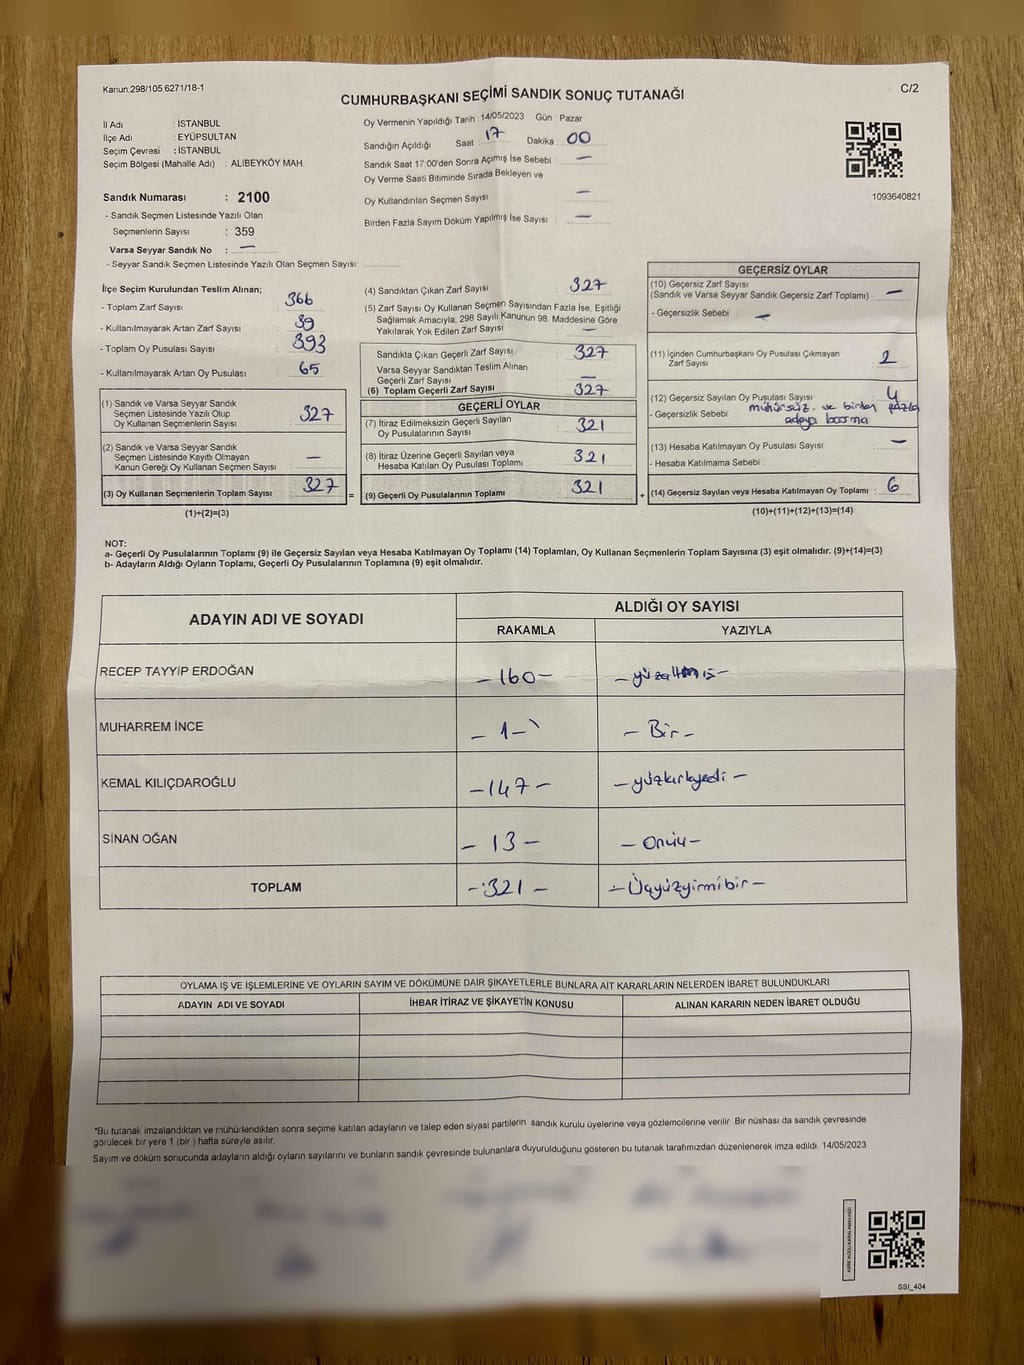 Kanun:298/105,6271/18-1
C/2
CUMHURBAŞKANI SEÇİMİ SANDIK SONUÇ TUTANAĞI
İl Adı : İSTANBUL
İlçe Adı : EYÜPSULTAN
Seçim Çevresi : İSTANBUL
Seçim Bölgesi (Mahalle Adı) : ALİBEYKÖY MAH.
Sandık Numarası : 2100
- Sandık Seçmen Listesinde Yazılı Olan
Seçmenlerin Sayısı : 359
Varsa Seyyar Sandık No : —
- Seyyar Sandık Seçmen Listesinde Yazılı Olan Seçmen Sayısı:
Oy Vermenin Yapıldığı Tarih : 14/05/2023 Gün : Pazar
Sandığın Açıldığı Saat : 17 Dakika : 00
Sandık Saat 17:00'den Sonra Açılmış İse Sebebi : —
Oy Verme Saati Bitiminde Sırada Bekleyen ve
Oy Kullandırılan Seçmen Sayısı : —
Birden Fazla Sayım Döküm Yapılmış İse Sayısı : —
1093640821
İlçe Seçim Kurulundan Teslim Alınan;
- Toplam Zarf Sayısı : 366
- Kullanılmayarak Artan Zarf Sayısı : 39
- Toplam Oy Pusulası Sayısı : 393
- Kullanılmayarak Artan Oy Pusulası : 65
(1) Sandık ve Varsa Seyyar Sandık
Seçmen Listesinde Yazılı Olup
Oy Kullanan Seçmenlerin Sayısı : 327
(2) Sandık ve Varsa Seyyar Sandık
Seçmen Listesinde Kayıtlı Olmayan
Kanun Gereği Oy Kullanan Seçmen Sayısı : —
(3) Oy Kullanan Seçmenlerin Toplam Sayısı : 327
(1)+(2)=(3)
=
(4) Sandıktan Çıkan Zarf Sayısı : 327
(5) Zarf Sayısı Oy Kullanan Seçmen Sayısından Fazla İse, Eşitliği
Sağlamak Amacıyla; 298 Sayılı Kanunun 98. Maddesine Göre
Yakılarak Yok Edilen Zarf Sayısı : —
Sandıkta Çıkan Geçerli Zarf Sayısı : 327
Varsa Seyyar Sandıktan Teslim Alınan
Geçerli Zarf Sayısı : —
(6) Toplam Geçerli Zarf Sayısı : 327
GEÇERLİ OYLAR
(7) İtiraz Edilmeksizin Geçerli Sayılan
Oy Pusulalarının Sayısı : 321
(8) İtiraz Üzerine Geçerli Sayılan veya
Hesaba Katılan Oy Pusulası Toplamı : 321
(9) Geçerli Oy Pusulalarının Toplamı : 321
+
GEÇERSİZ OYLAR
(10) Geçersiz Zarf Sayısı
(Sandık ve Varsa Seyyar Sandık Geçersiz Zarf Toplamı) : —
- Geçersizlik Sebebi : —
(11) İçinden Cumhurbaşkanı Oy Pusulası Çıkmayan
Zarf Sayısı : 2
(12) Geçersiz Sayılan Oy Pusulası Sayısı : 4
- Geçersizlik Sebebi : mühürsüz ve birden fazla
adaya basma
(13) Hesaba Katılmayan Oy Pusulası Sayısı : —
- Hesaba Katılmama Sebebi :
(14) Geçersiz Sayılan veya Hesaba Katılmayan Oy Toplamı : 6
(10)+(11)+(12)+(13)=(14)
NOT:
a- Geçerli Oy Pusulalarının Toplamı (9) ile Geçersiz Sayılan veya Hesaba Katılmayan Oy Toplamı (14) Toplamları, Oy Kullanan Seçmenlerin Toplam Sayısına (3) eşit olmalıdır. (9)+(14)=(3)
b- Adayların Aldığı Oyların Toplamı, Geçerli Oy Pusulalarının Toplamına (9) eşit olmalıdır.
ADAYIN ADI VE SOYADI
ALDIĞI OY SAYISI
RAKAMLA YAZIYLA
RECEP TAYYİP ERDOĞAN -160- -yüzaltmış-
MUHARREM İNCE -1- -Bir-
KEMAL KILIÇDAROĞLU -147- -yüzkırkyedi-
SİNAN OĞAN -13- -Onüü-
TOPLAM -321- -Üçyüzyirmibir-
OYLAMA İŞ VE İŞLEMLERİNE VE OYLARIN SAYIM VE DÖKÜMÜNE DAİR ŞİKAYETLERLE BUNLARA AİT KARARLARIN NELERDEN İBARET BULUNDUKLARI
ADAYIN ADI VE SOYADI İHBAR İTİRAZ VE ŞİKAYETİN KONUSU ALINAN KARARIN NEDEN İBARET OLDUĞU
*Bu tutanak imzalandıktan ve mühürlendikten sonra seçime katılan adayların ve talep eden siyasi partilerin sandık kurulu üyelerine veya gözlemcilerine verilir. Bir nüshası da sandık çevresinde
görülecek bir yere 1 (bir) hafta süreyle asılır.
Sayım ve döküm sonucunda adayların aldığı oyların sayılarını ve bunların sandık çevresinde bulunanlara duyurulduğunu gösteren bu tutanak tarafımızdan düzenlenerek imza edildi. 14/05/2023
SSİ_404